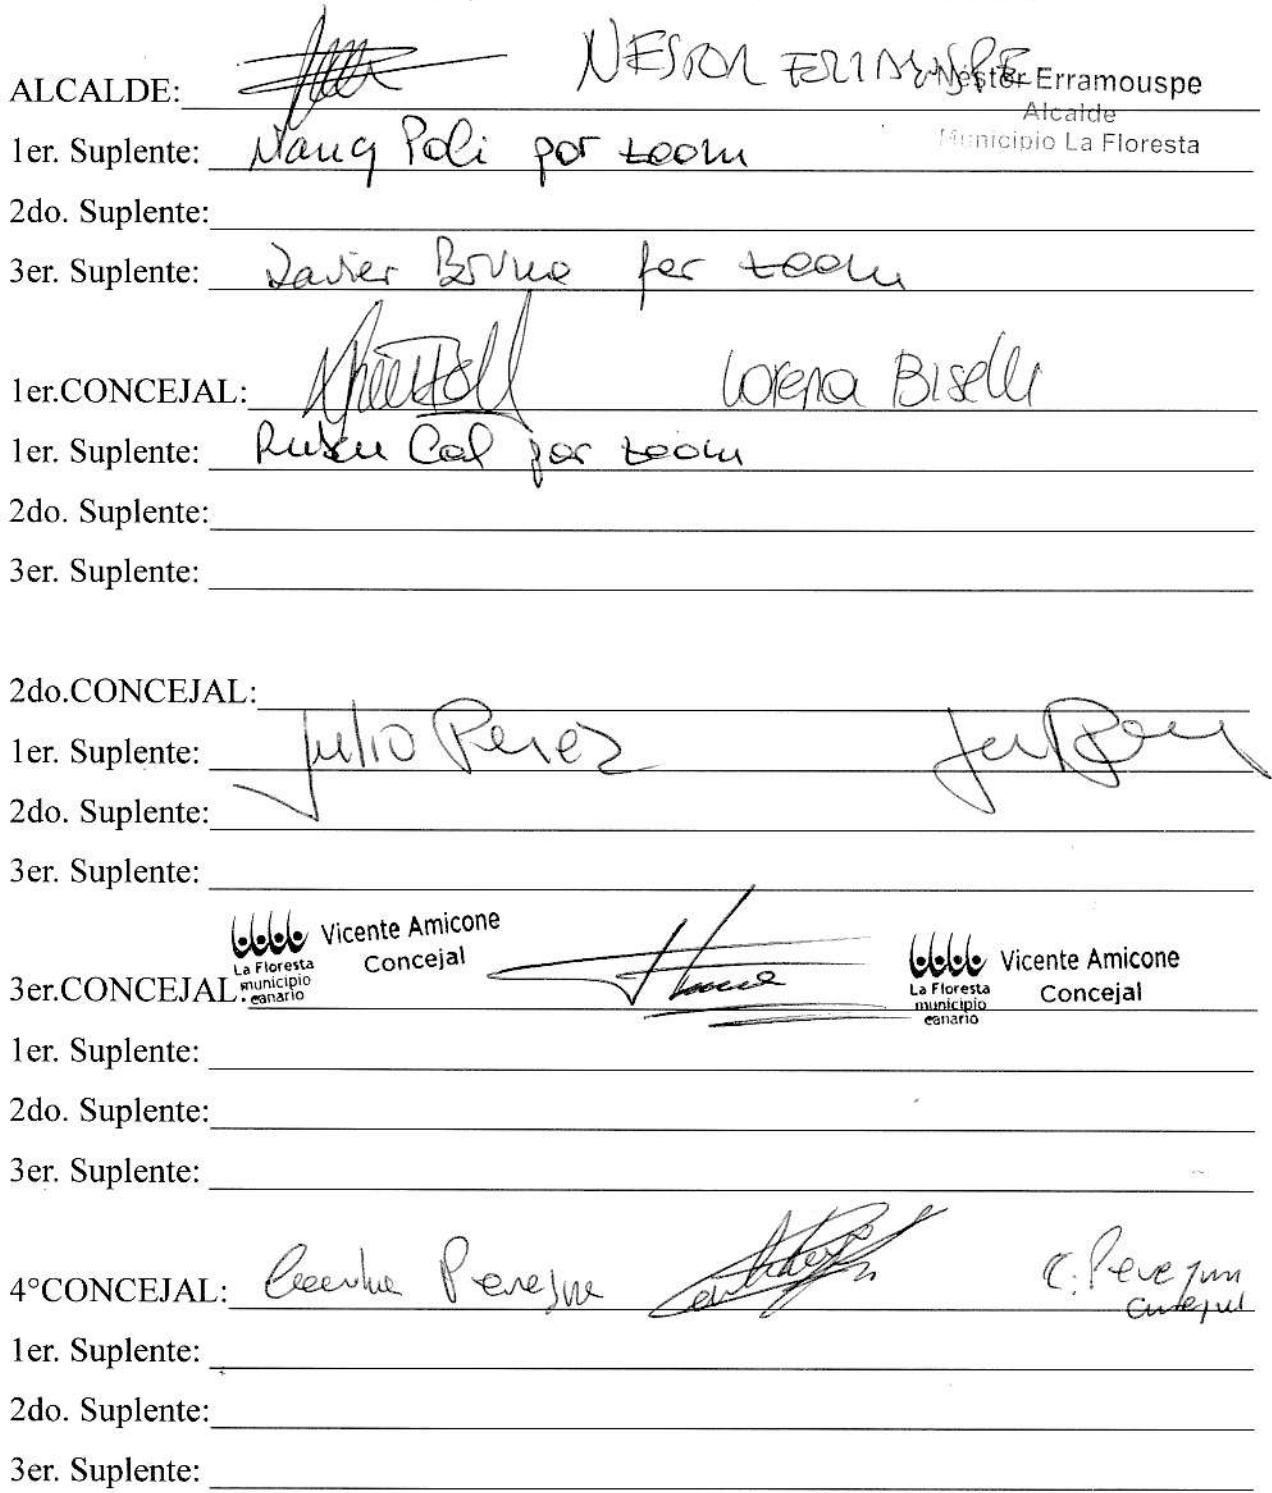 ALCALDE: NESTOR ERRAMOUSPE Néstor Erramouspe
Alcalde
Municipio La Floresta
1er. Suplente: Nancy Poli por zoom
2do. Suplente:
3er. Suplente: Javier Bruno por zoom
1er.CONCEJAL: Lorena Biselli
1er. Suplente: Ruben Cal por zoom
2do. Suplente:
3er. Suplente:
2do.CONCEJAL:
1er. Suplente: Julio Perez
2do. Suplente:
3er. Suplente:
La Floresta municipio canario Vicente Amicone Concejal
3er.CONCEJAL:
La Floresta municipio canario Vicente Amicone Concejal
1er. Suplente:
2do. Suplente:
3er. Suplente:
4°CONCEJAL:
1er. Suplente:
2do. Suplente:
3er. Suplente: